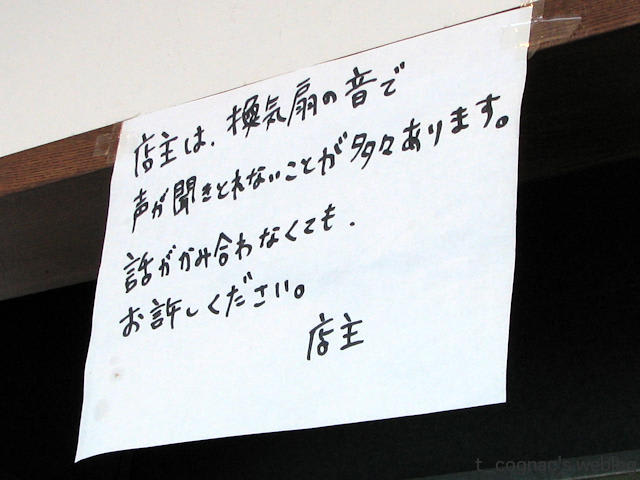 店主は、換気扇の音で
声が聞きとれないことが多々あります。
話がかみ合わなくても、
お許しください。
店主
t_cognac's webb